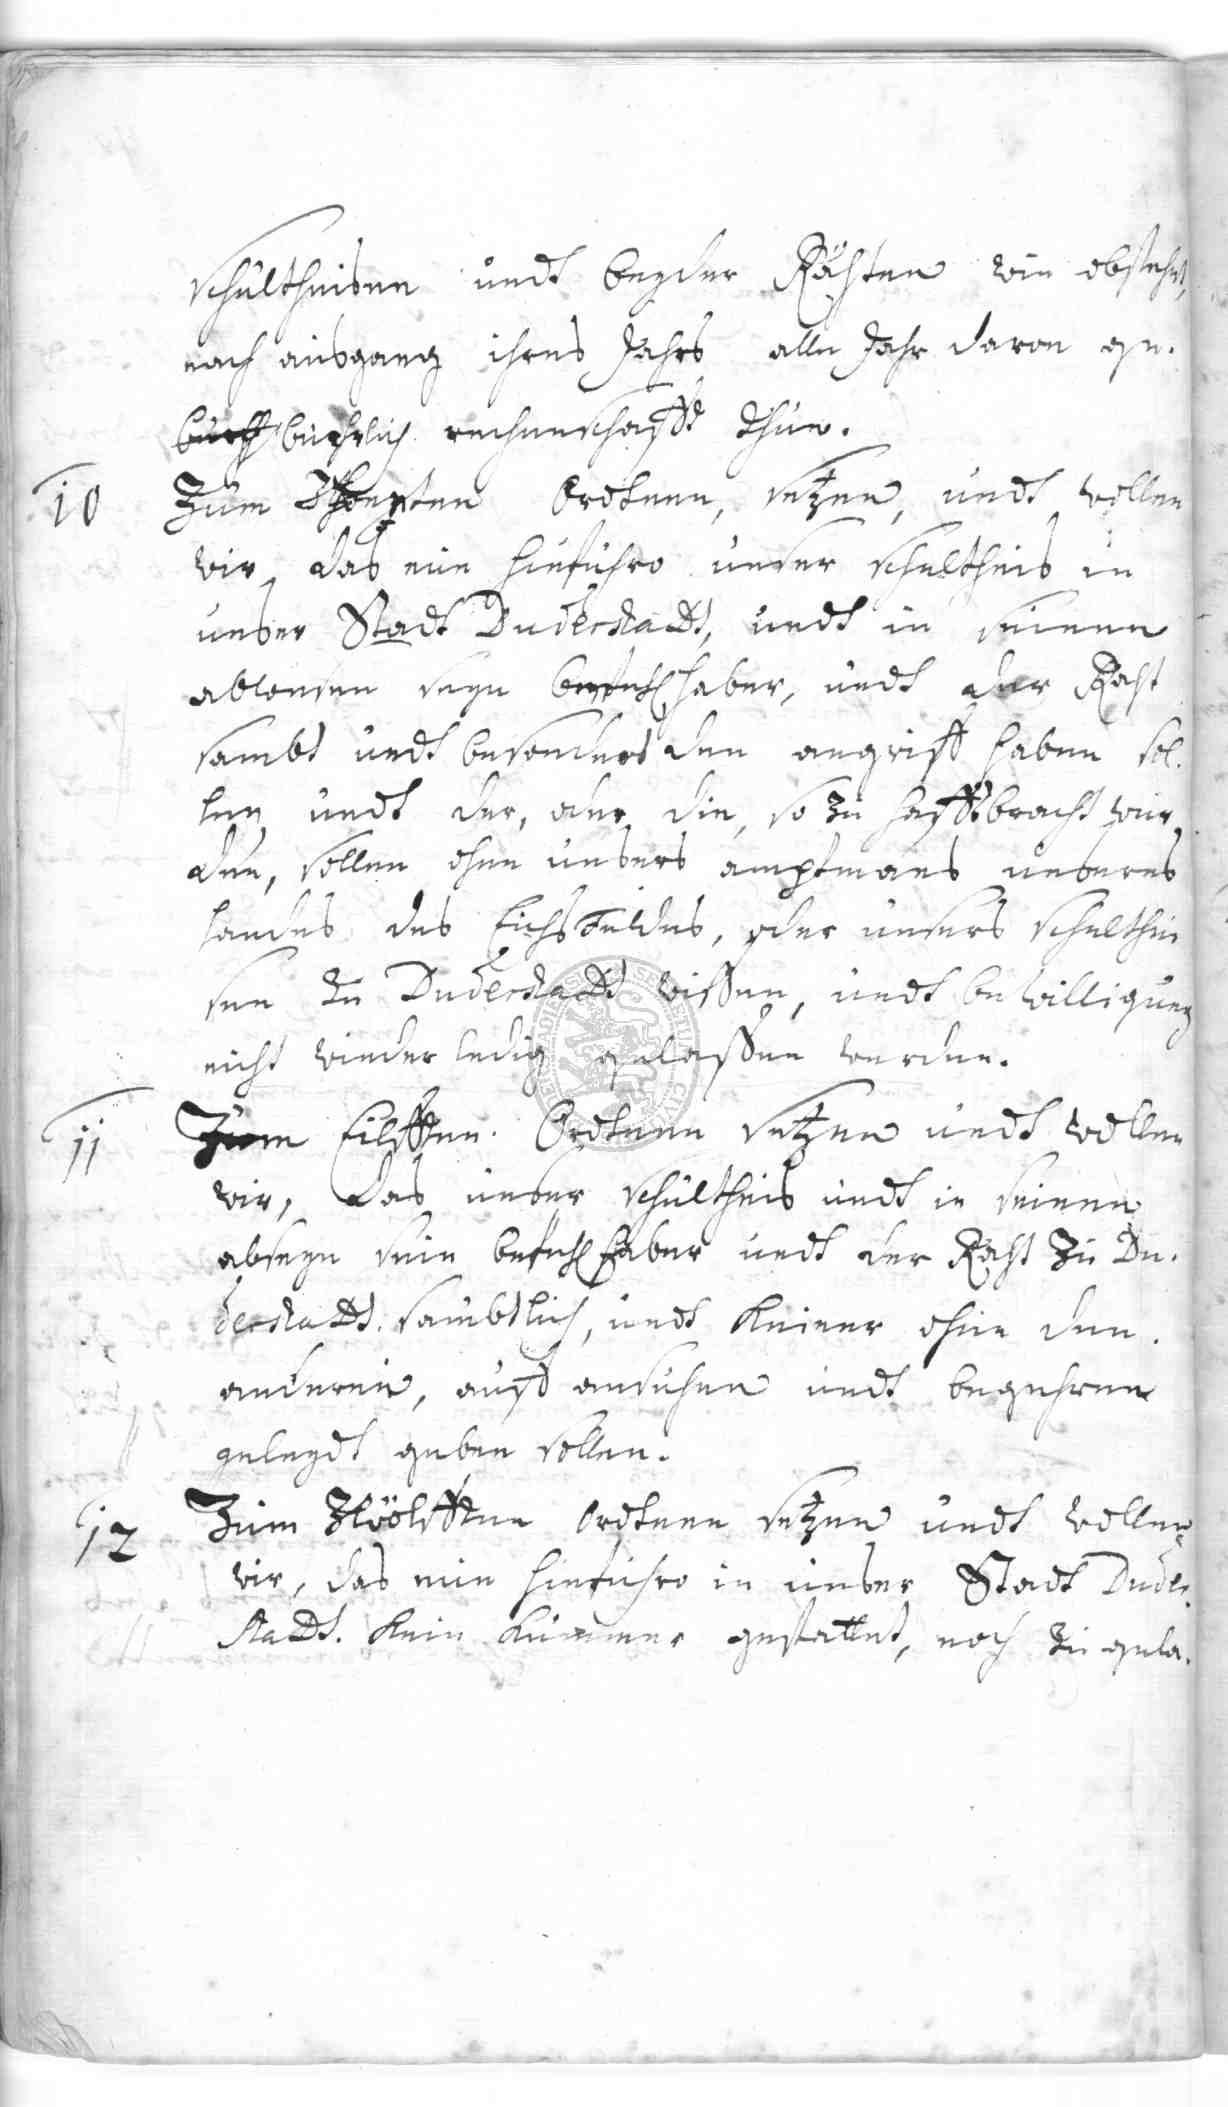 schultheisen undt beyder Rähten wie obstehet,
nach ausgang ihres Jahrs alle Jahr davon ge-
bührlich rechenschafft thun.
10 Zum Zehenten Ordtnen, setzen, undt wollen
wir, das nun hinfuhro unser schultheis in
unser Stadt Duderstadt, undt in seinem
abwesen seyn befehlhaber, undt der Raht
sambt undt besonders den angriff haben sol-
len, undt der, oder die, so zu hafftbracht wür-
den, sollen ohne unsers amptmans unseres
landes des Eichsfeldes, oder unsers schulthei
sen zu Duderstadt wissen, undt bewilligung
nicht wieder ledig gelassen werden.
11 Zum Eilfften. Ordtnen setzen undt wollen
wir, das unser schultheis undt in seinem
abseyn sein befehlhaber undt der Raht zu Du-
derstadt. sambtlich, undt keiner ohne den
anderen, auff ansuchen undt begehren
geleydt geben sollen.
12 Zum Zwöolfften Ordtnen setzen undt wollen
wir, das nun hinfuhro in unser Stadt Duder-
stadt. kein kummer gestattet, noch zu gela-